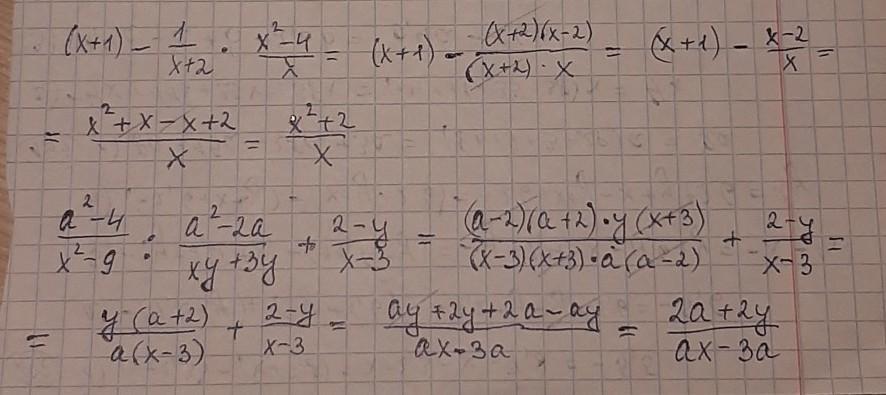 (x+1) - 1/(x+2) · (x²-4)/x = (x+1) - ((x+2)(x-2))/((x+2)·x) = (x+1) - (x-2)/x =
= (x²+x-x+2)/x = (x²+2)/x
(a²-4)/(x²-9) : (a²-2a)/(xy+3y) + (2-y)/(x-3) = ((a-2)(a+2)·y(x+3))/((x-3)(x+3)·a(a-2)) + (2-y)/(x-3) =
= (y(a+2))/(a(x-3)) + (2-y)/(x-3) = (ay+2y+2a-ay)/(ax-3a) = (2a+2y)/(ax-3a)